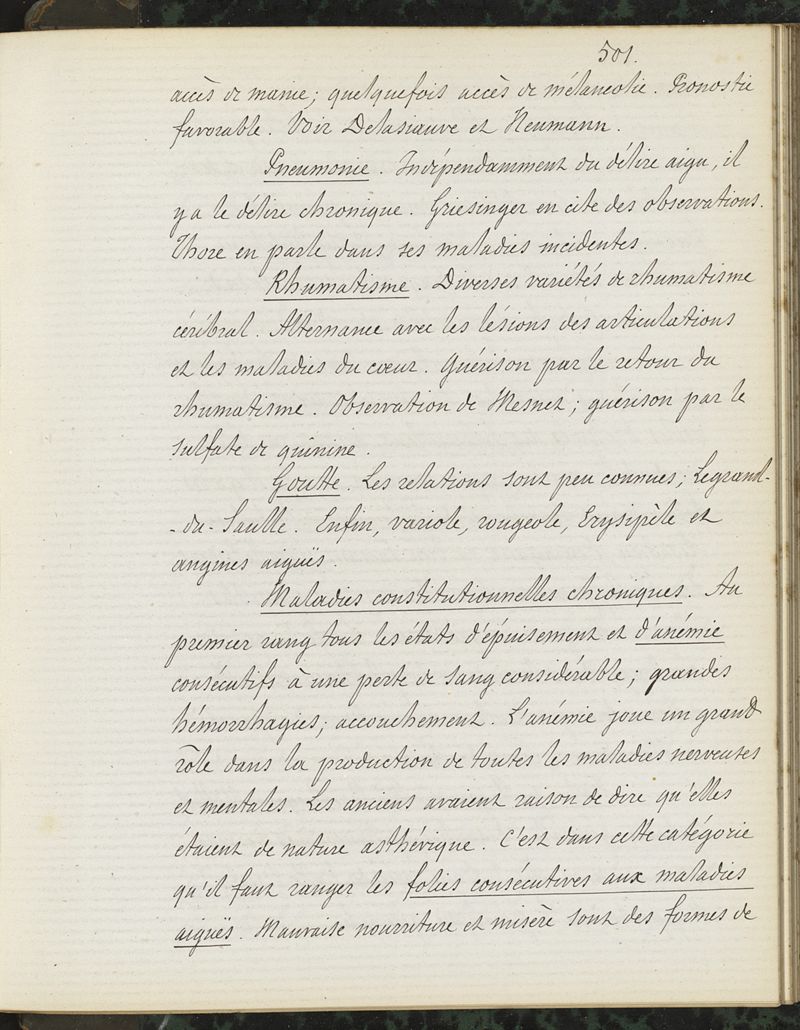 501.
accès de manie; quelquefois accès de mélancolie. Pronostic
favorable. Voir Delasiauve et Neumann.
Pneumonie. Indépendamment du délire aigu, il
y a le délire chronique. Griesinger en cite des observations.
Thore en parle dans ses maladies incidentes.
Rhumatisme. Diverses variétés de rhumatisme
cérébral. Alternance avec les lésions des articulations
et les maladies du cœur. Guérison par le retour du
rhumatisme. Observation de Mesnet; guérison par le
sulfate de quinine.
Goutte. Les relations sont peu connues; Legrand-
-du-Saulle. Enfin, variole, rougeole, Erysipèle et
angines aiguës.
Maladies constitutionnelles chroniques. Au
premier rang tous les états d'épuisement et d'anémie
consécutifs à une perte de sang considérable; grandes
hémorrhagies; accouchement. L'anémie joue un grand
rôle dans la production de toutes les maladies nerveuses
et mentales. Les anciens avaient raison de dire qu'elles
étaient de nature asthérique. C'est dans cette catégorie
qu'il faut ranger les folies consécutives aux maladies
aiguës. Mauvaise nourriture et misère sont des formes de